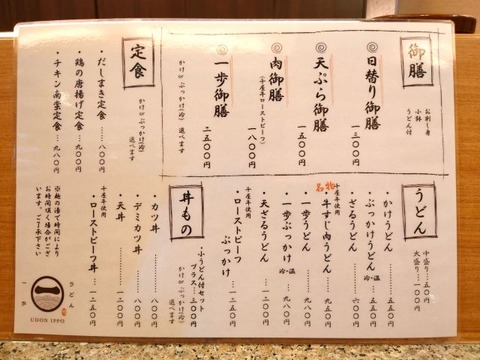 御膳
お刺し身
小鉢
うどん付
◎日替り御膳 …一三〇〇円
◎天ぷら御膳 …一五〇〇円
◎肉御膳 …一八〇〇円
(十勝牛ローストビーフ)
◎一歩御膳 …二五〇〇円
かけorぶっかけ(冷) 選べます
定食
かけorぶっかけ(冷) 選べます
・だしまき定食 … 八〇〇円
・鶏の唐揚げ定食 … 九八〇円
・チキン南蛮定食 … 九八〇円
うどん
中盛り…五〇円
大盛り…一〇〇円
・かけうどん … 五五〇円
・ぶっかけうどん 冷・温 … 五五〇円
・ざるうどん … 六〇〇円
名物
十勝牛使用
・牛すじ肉うどん … 九八〇円
・一歩うどん … 九八〇円
・一歩ぶっかけ 冷・温 … 九八〇円
・天ざるうどん … 一二五〇円
十勝牛使用
・ローストビーフ
ぶっかけ … 一二五〇円
丼もの
・小うどん付セット
プラス…三〇〇円
かけorぶっかけ(冷) 選べます
・カツ丼 … 八〇〇円
・デミカツ丼 … 八五〇円
・天丼 … 一二五〇円
十勝牛使用
・ローストビーフ丼 … 一二五〇円
※麺の湯で時間により
お時間頂く場合がござ
います。ご了承下さい
うどん
一歩
UDON IPPO